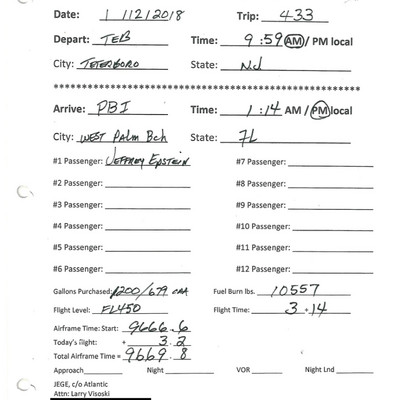 Date: 1/12/2018 Trip: 433
Depart: TEB Time: 9:59 AM / PM local
City: TETERBORO State: NJ
************************************************************
Arrive: PBI Time: 1:14 AM / PM local
City: WEST Palm Bch State: FL
#1 Passenger: Jeffrey Epstein #7 Passenger:
#2 Passenger: #8 Passenger:
#3 Passenger: #9 Passenger:
#4 Passenger: #10 Passenger:
#5 Passenger: #11 Passenger:
#6 Passenger: #12 Passenger:
Gallons Purchased: 1200/679 CAA Fuel Burn lbs. 10557
Flight Level: FL450 Flight Time: 3+14
Airframe Time: Start: 9666.6
Today's flight: + 3.2
Total Airframe Time = 9669.8
Approach Night VOR Night Lnd
JEGE, c/o Atlantic
Attn: Larry Visoski